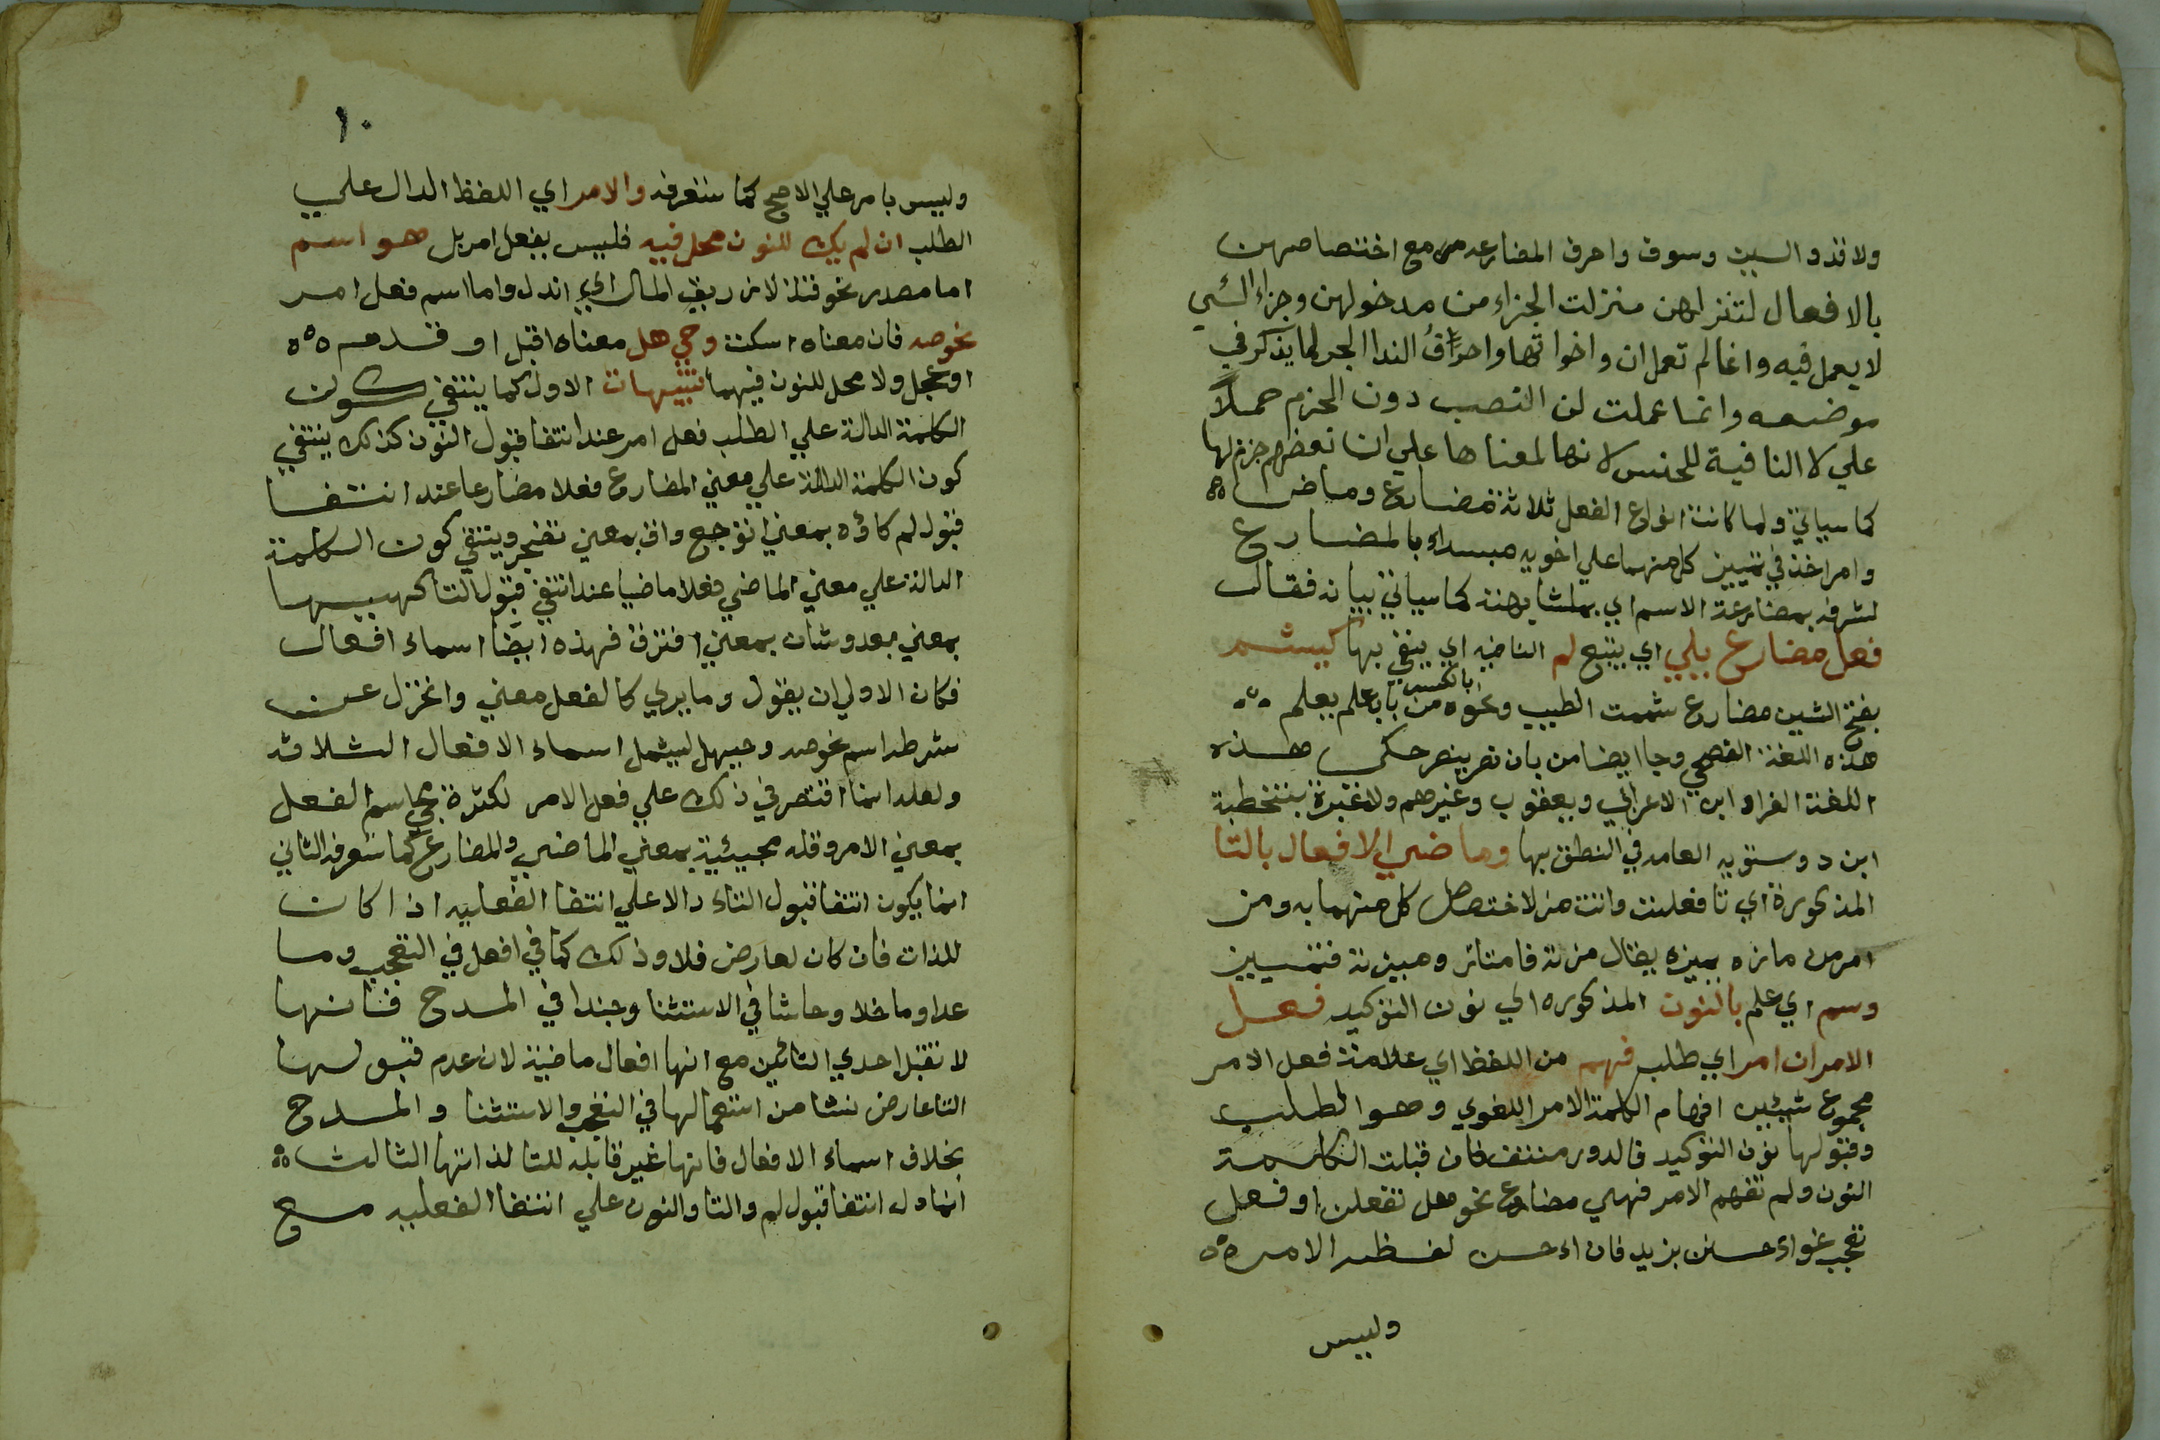 ولا قد والسين وسوف واحرف المضارعه مع اختصاصهن
بالافعال لتنزلهن منزلت الجزاء من مدخولهن وجزاء الشي
لا يعمل فيه وانما لم تعمل ان واخواتها واحرف الندا الجر لما يذكر في
موضعه وانما عملت لن النصب دون الجزم حملاً
علي لا النافية للجنس لانها لمعناها علي ان بعضهم جزم بها
كما سياتي ولما كانت انواع الفعل ثلاثة مضارع وماض
وامر اخذ في تمييز كل منهما علي اخويه مبتداء بالمضارع
لشرفه بمضارعة الاسم اي بمشابهته كما سياتي بيانه فقال
فعل مضارع يلي اي يتبع لم النافيه اي ينفي بها كيشم
بفتح الشين مضارع شممت الطيب ونحوه من باب علم يعلم
بالكسر
هذه اللغة الفصحي وجا ايضا من باب نصر ينصر حكي هذه
اللغة الفرا وابن الاعرابي ويعقوب وغيرهم ولا عبرة بتخطية
ابن درستويه العامه في النطق بها وماضي الافعال بالتا
المذكورة اي تا فعلت واتت مز لاختصاص كل منهما به ومز
امر من مازه يميزه يقال مزته فامتاز وميزته فتميز
وسم اي علم بالنون المذكوره اي نون التوكيد فعل
الامر ان امر اي طلب فهم من اللفظ اي علامة فعل الامر
مجموع شيئين افهام الكلمة الامر اللغوي وهو الطلب
وقبولها نون التوكيد فالدور منتف فان قبلت الكلمة
النون ولم تفهم الامر فهي مضارع نحو هل تفعلن او فعل
تعجب نحو احسن بزيد فان احسن لفظه الامر
وليس
١٠
وليس بامر علي الاصح كما ستعرفه والامر اي اللفظ الدال علي
الطلب ان لم يك للنون محل فيه فليس بفعل امر بل هو اسم
اما مصدر نحو فندلا زريق المال اي اندل واما اسم فعل امر
نحو صه فان معناه اسكت وحيهل معناه اقبل او قدم
او عجل ولا محل للنون فيهما تنبيهات الاول كما ينتفي كون
الكلمة الدالة علي الطلب فعل امر عند انتفا قبول النون كذلك ينتفي
كون الكلمة الدالة علي معني المضارع فعلا مضارعا عند انتفا
قبول لم كاوه بمعني اتوجع واف بمعني تضجر وينتفي كون الكلمة
الدالة علي معني الماضي فعلا ماضيا عند انتفي قبول التا كهيهات
بمعني بعد وشتان بمعني افترق فهذه ايضا اسماء افعال
فكان الاولي ان يقول وما يري كالفعل معني وانخزل عن
شرطه اسم نحو صه وحيهل ليشمل اسماء الافعال الثلاثه
ولعله انما اقتصر في ذلك علي فعل الامر لكثرة مجي اسم الفعل
بمعني الامر وقلة مجيئية بمعني الماضي والمضارع كما ستعرفه الثاني
انما يكون انتفا قبول التاء دالا علي انتفا الفعليه اذا كان
للذات فان كان لعارض فلا وذلك كما في افعل في التعجب وما
عدا وما خلا وحاشا في الاستثنا وحبذا في المدح فانها
لا تقبل احدي التائين مع انها افعال ماضية لان عدم قبولها
التا عارض نشا من استعمالها في التعجب والاستثنا والمدح
بخلاف اسماء الافعال فانها غير قابله للتا لذاتها الثالث
انما دل انتفا قبول لم والتا والنون علي انتفا الفعليه مع